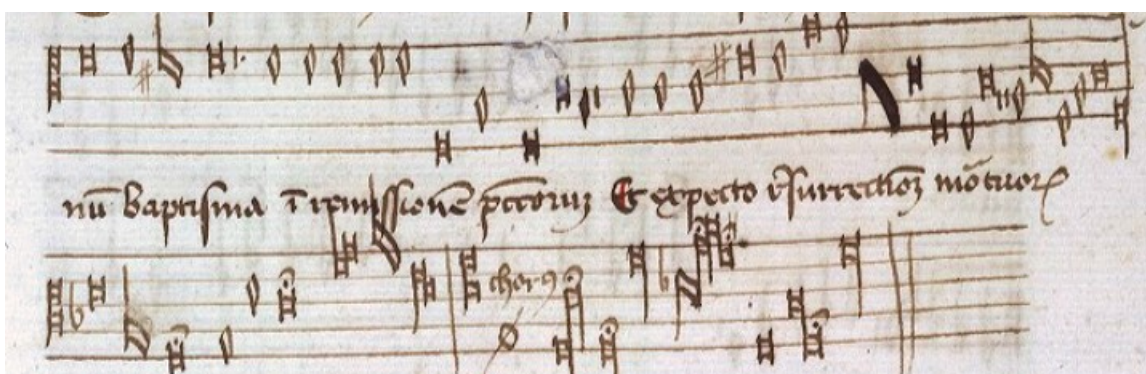 nū baptisma ī remissionē pctōrum Et expecto rͤsurrectionem mōtuorꝝ
chorus